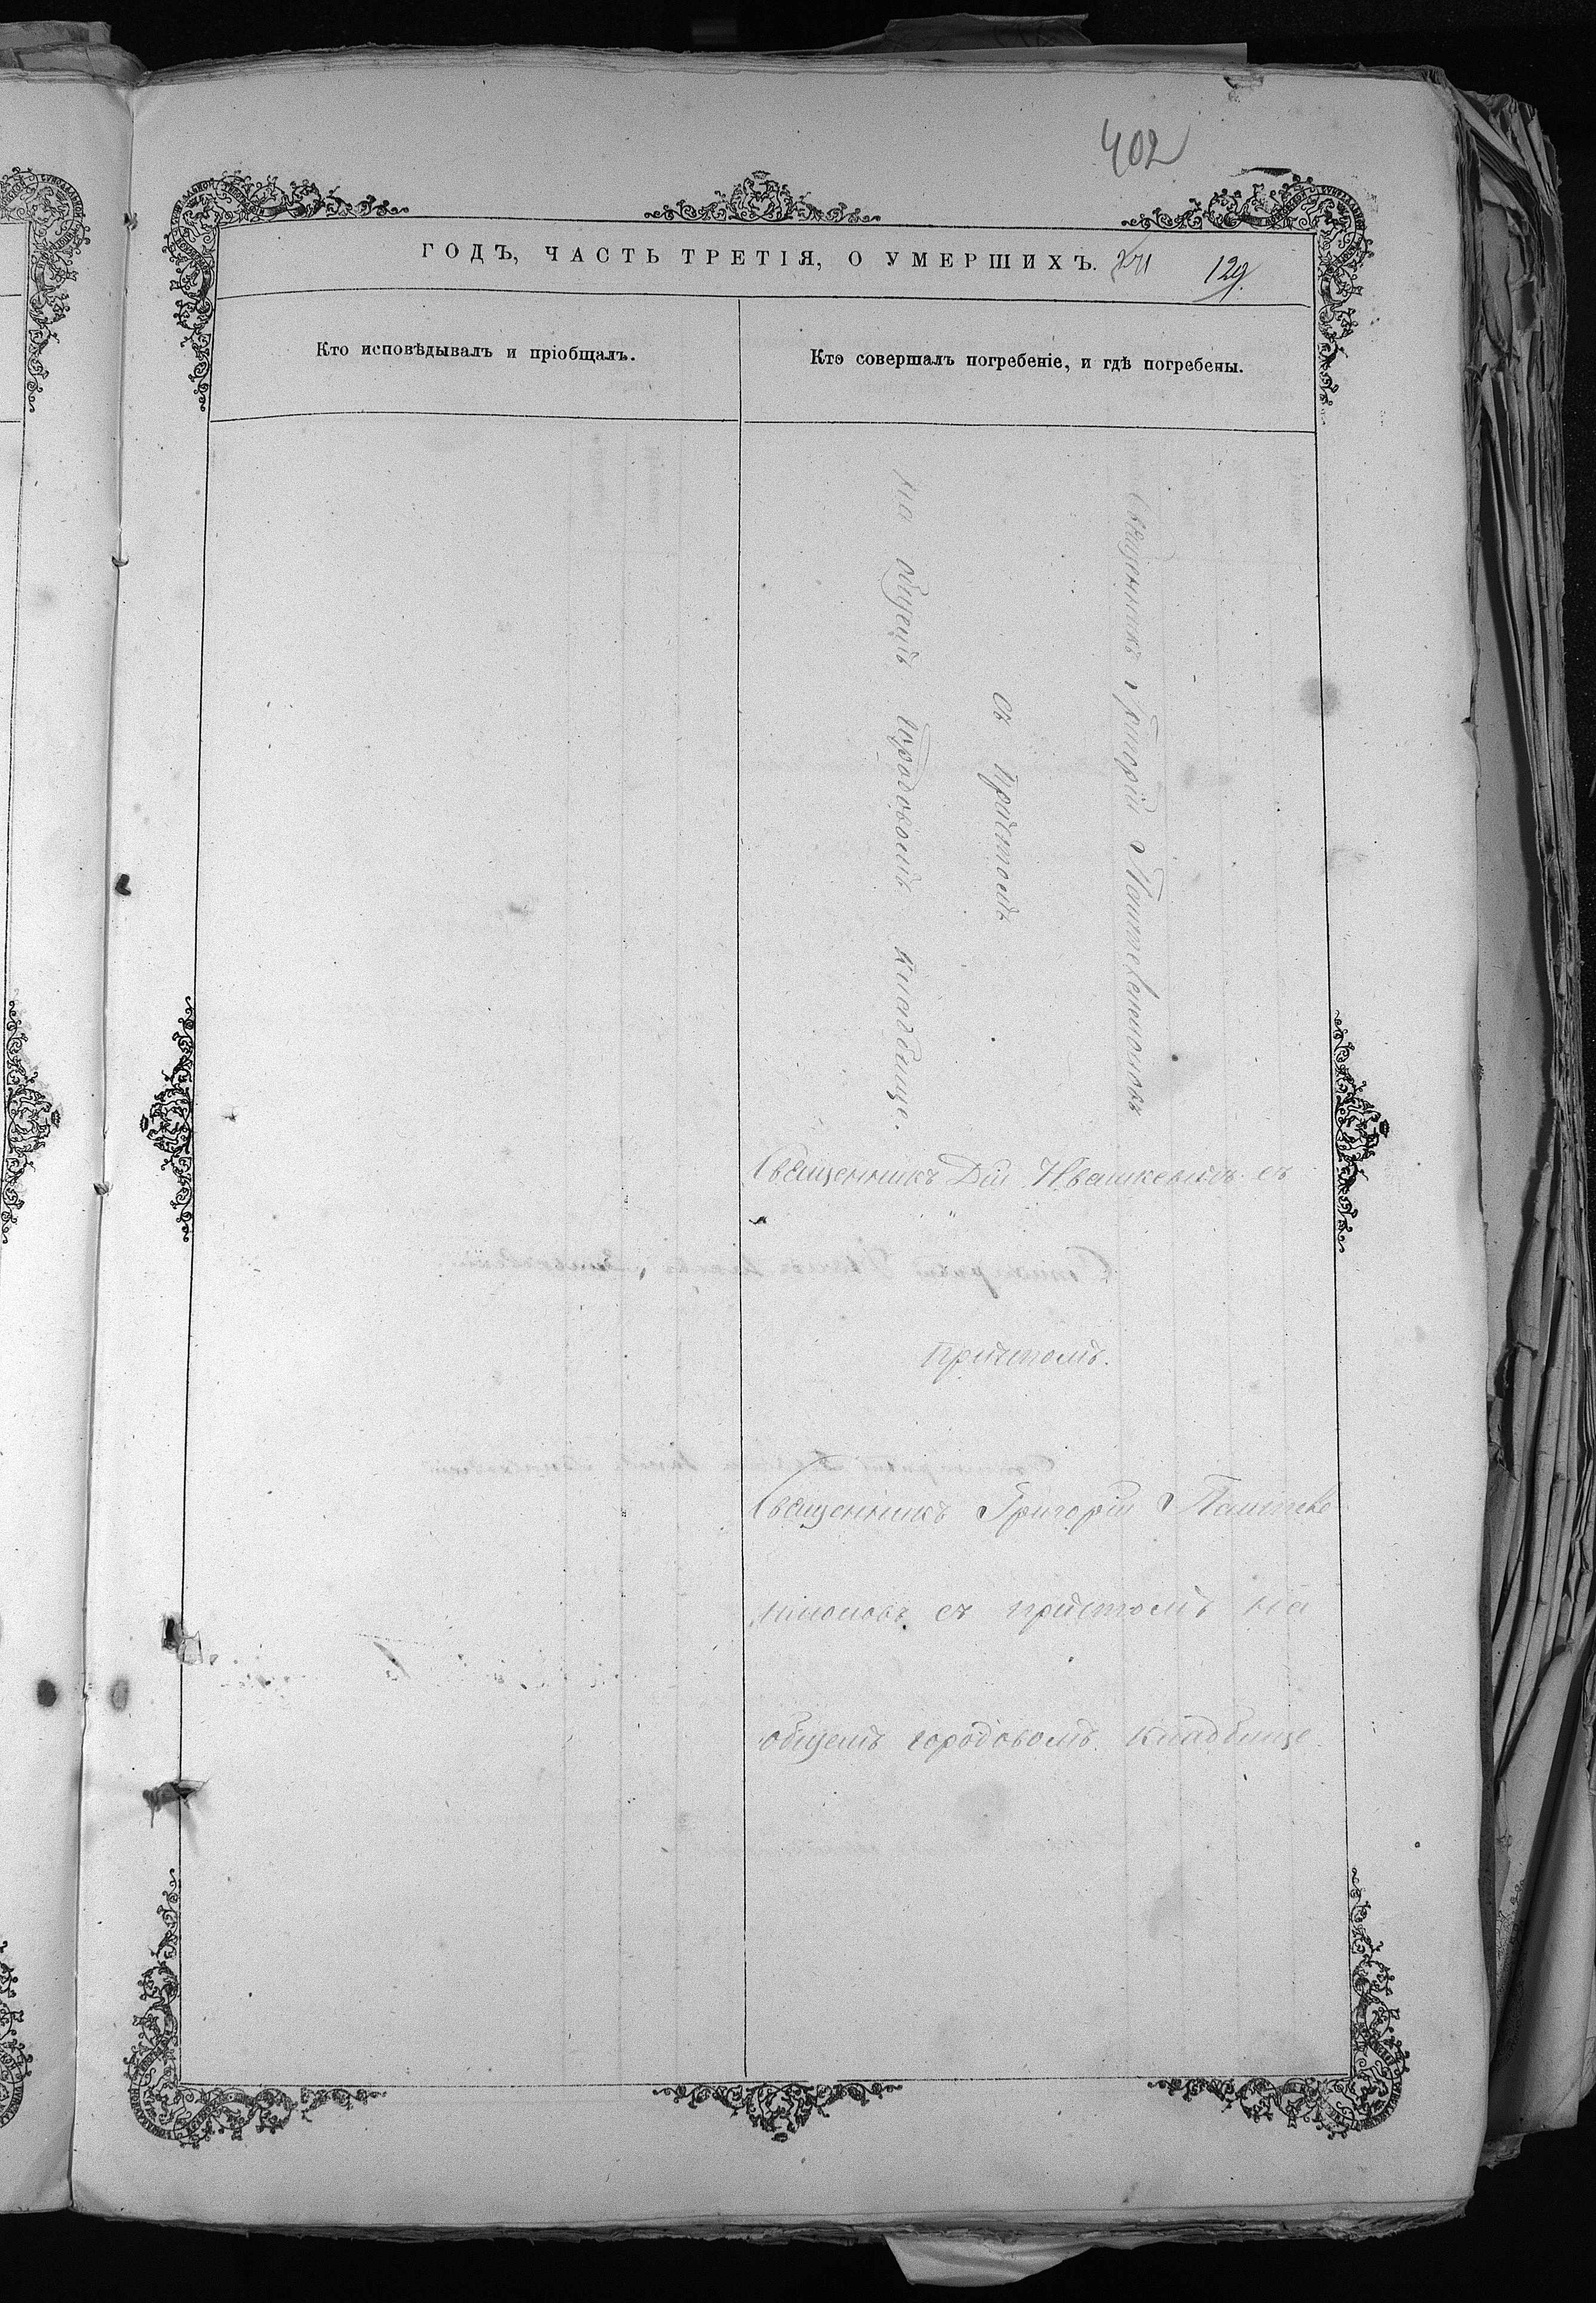 402
ГОДЪ, ЧАСТЬ ТРЕТІЯ, О УМЕРШИХЪ.
129.
Кто исповѣдывалъ и пріобщалъ.
Кто совершалъ погребеніе, и гдѣ погребены.
Священникъ Григорій
съ причтомъ
на общемъ городовомъ кладбище.
Священникъ Ивашкевичъ съ
причтомъ.
Священникъ Григорій
съ причтомъ на
общемъ городовомъ кладбище